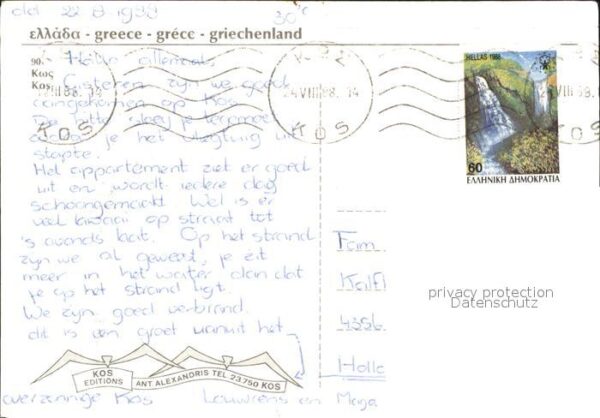 dd 22 8 1988 30°c
ελλάδα - greece - grèce - griechenland
90.
Κως
Kos
Hallo allemaal,
Gisteren zijn we goed
aangekomen op Kos.
De hitte sloeg je tegemoet
je het vliegtuig uit
stapte.
Het appartement ziet er goed
uit en wordt iedere dag
schoongemaakt. Wel is er
veel lawaai op straat tot
's avonds laat. Op het strand
zijn we al geweest, je zit
meer in het water dan dat
je op het strand ligt.
We zijn goed verbrand.
dit is een groet vanuit het
zonnige Kos Louwrens en
HELLAS 1988
60
ΕΛΛΗΝΙΚΗ ΔΗΜΟΚΡΑΤΙΑ
VIII 88. 14
KOS
24 VIII 88. 14
KOS
VIII 88. 14
KOS
Fam
4356
Holla
privacy protection
Datenschutz
KOS
EDITIONS
ANT ALEXANDRIS TEL 23.750 KOS